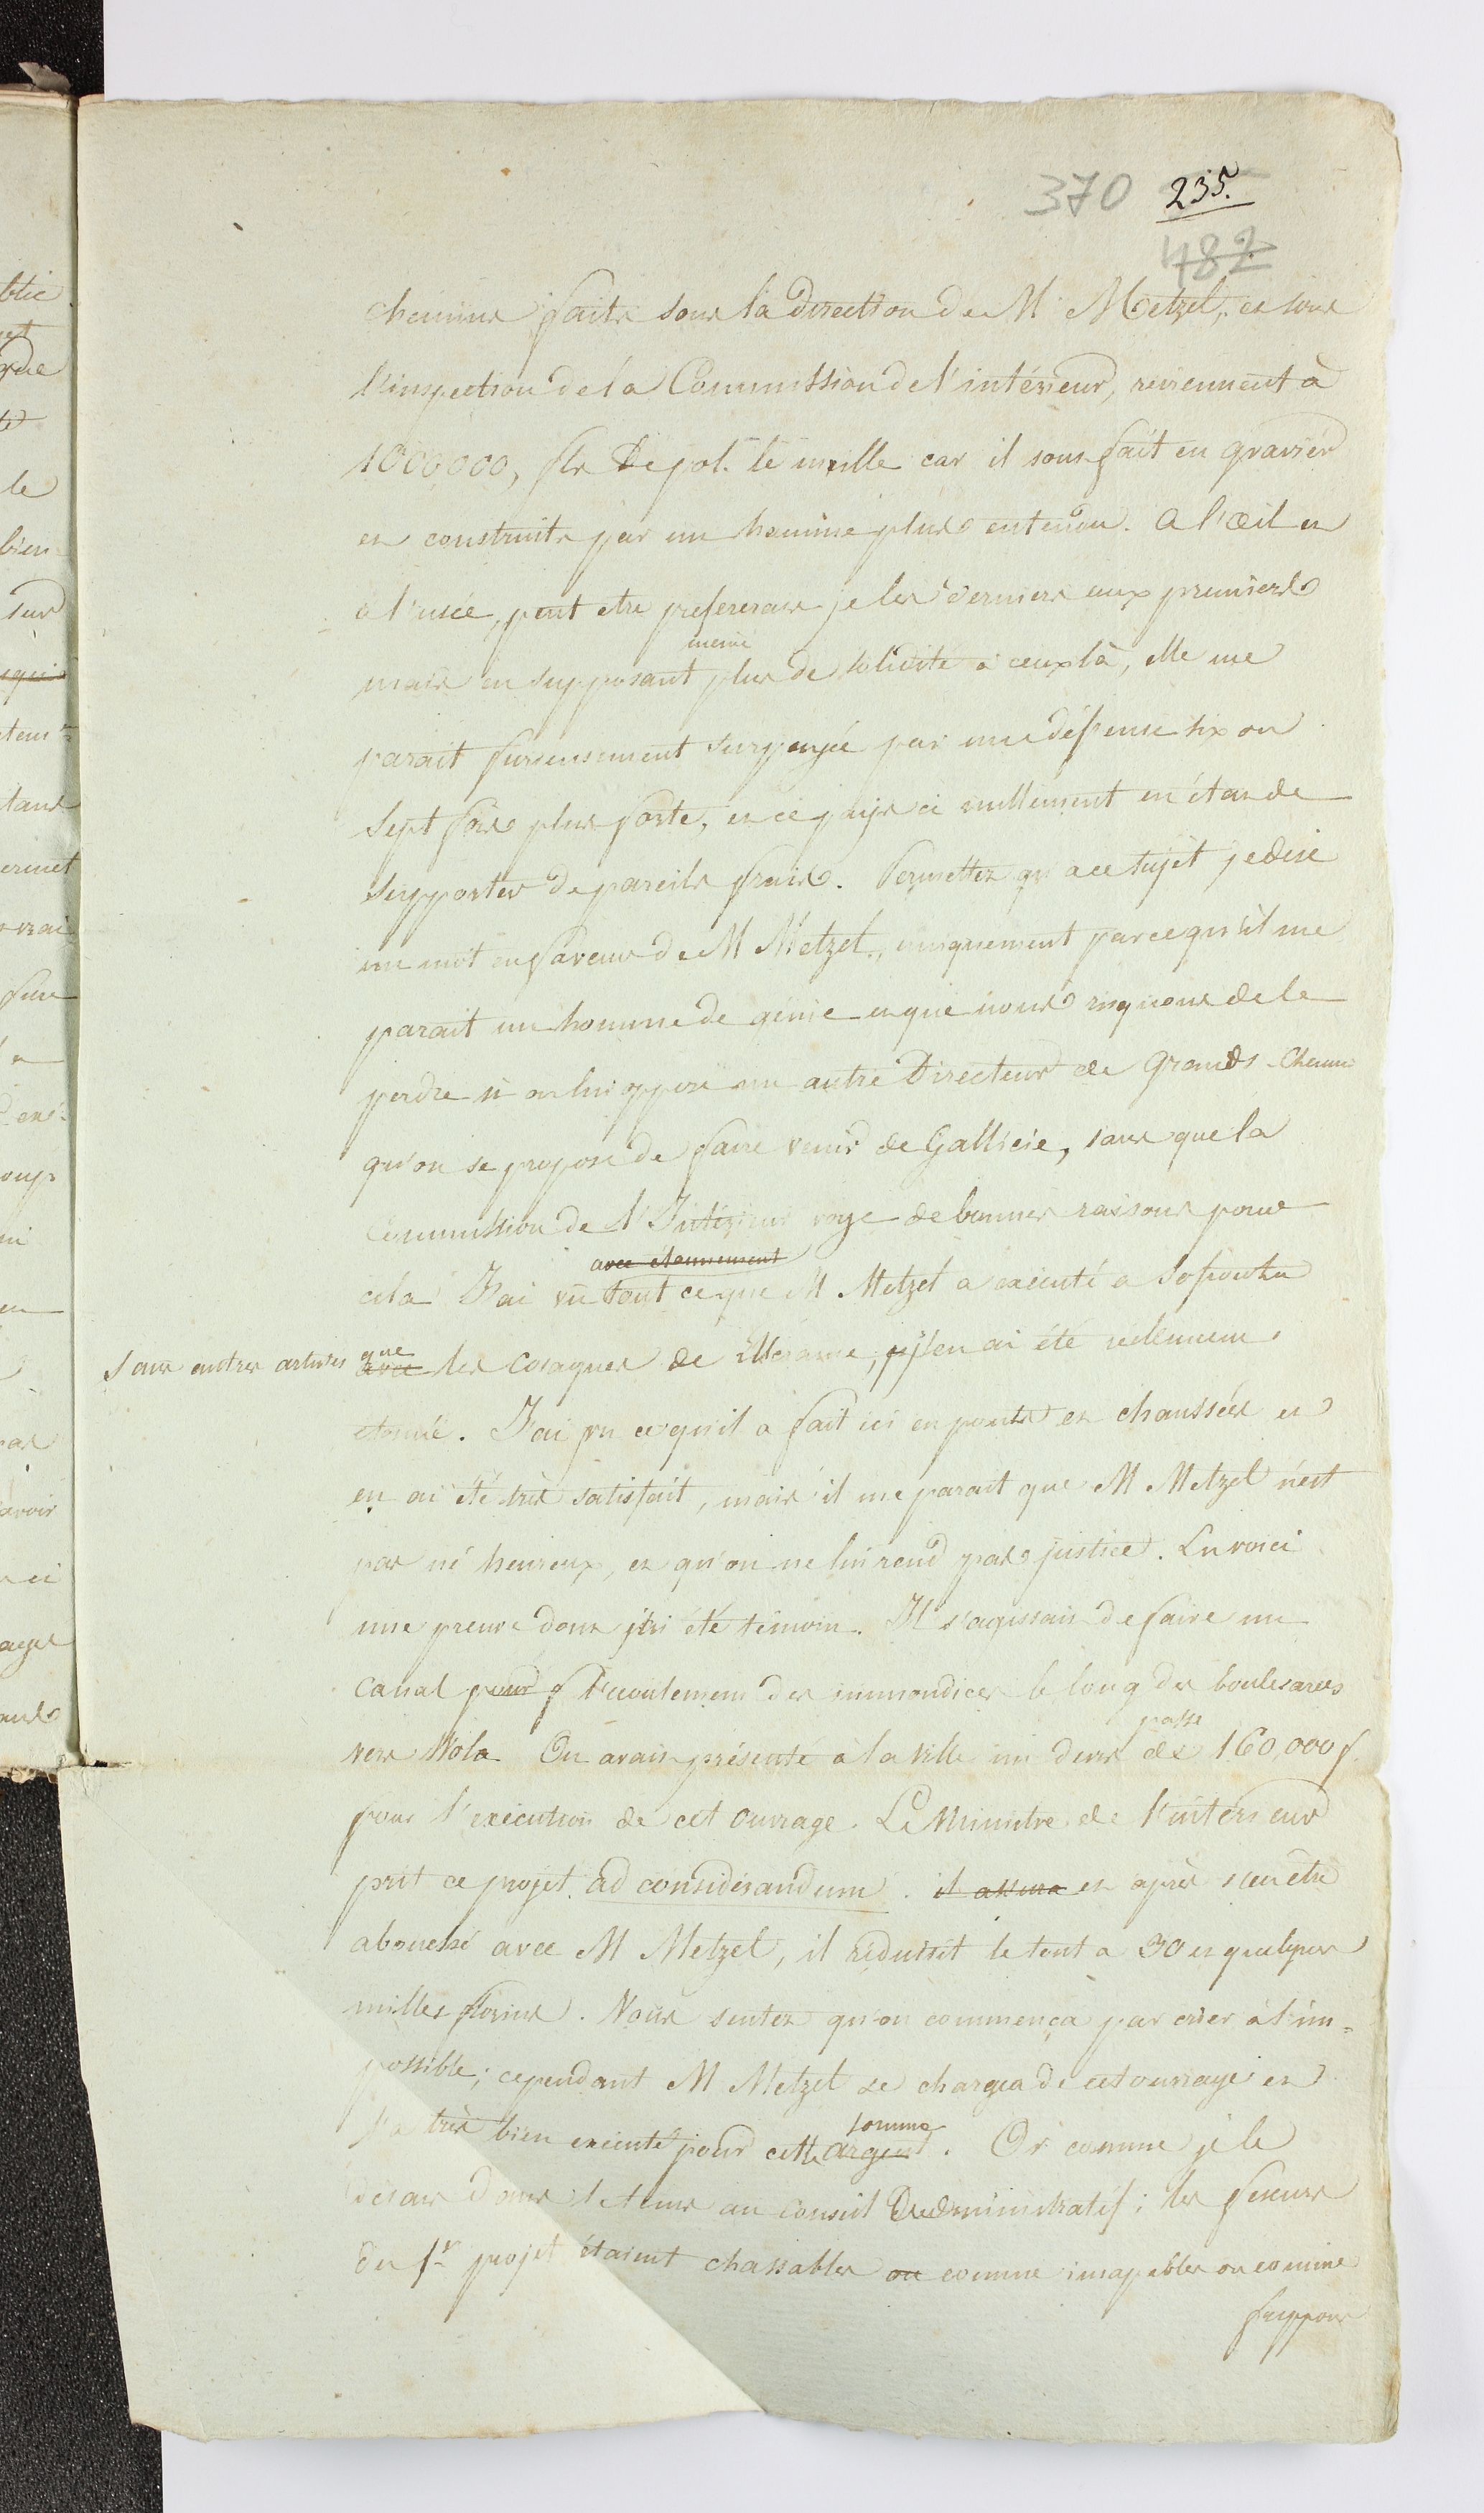 370 235.
482
chemins faits sous la direction de M. Metzel, et sous
l'inspection de la Commission de l'intérieur, reviennent à
1000000, fls de pol. le mille car il sont fait en gravier
et construits par un homme plus entendu. A l'œil et
a l'usée, peut etre prefererais je les derniers aux premiers
même
mais en supposant plus de solidité à ceux là, elle me
parait furieusement surpayée par une défense six ou
sept fois plus forte, et ce pays ci nullement en état de
supporter de pareils frais. Permettez qu'a ce sujet je dise
un mot en faveur de M Metzel, uniquement parce qu'il me
parait un homme de génie et que nous risquons de le
perdre si on lui oppose un autre Directeur de Grands-Chemins
qu'on se propose de faire venir de Gallicie, sans que la
Commission de l'Intérieur voye de bonnes raisons pour
avec étonnement
cela J'ai vu tout ce que M Metzel a exécuté a
sans autres artistes que
avec les cosaques de l'Ukraine, j'en ai été reellement
étonné. J'ai vu ce qu'il a fait ici en ponts et chaussées et
en ai été très satisfait, mais il me parait que M Metzel n'est
pas né heureux, et qu'on ne lui rend pas justice. En voici
une preuve dont j'ai été témoin. Il s'agissait de faire un
canal pour l'écoulement des immondices le long des boulevards
passe
vers Wola On avait présenté à la ville un devis de 160,000 f.
pour l'exécution de cet ouvrage. Le Ministre de l'intérieur
prit ce projet ad considérandum. il assura et après s'en être
abouché avec M Metzel, il réduisit le tout a 30 et quelques
milles florins. Vous sentez qu'on commença par crier à l'im=
possible; cependant M Metzel se chargea de cet ouvrage et
somme
l'a très bien executé pour cette argent. Or comme je le
disais dans le tems au conseil administratif; les feseurs
du 1r projet étaient chassables ou comme incapables ou comme
frippons